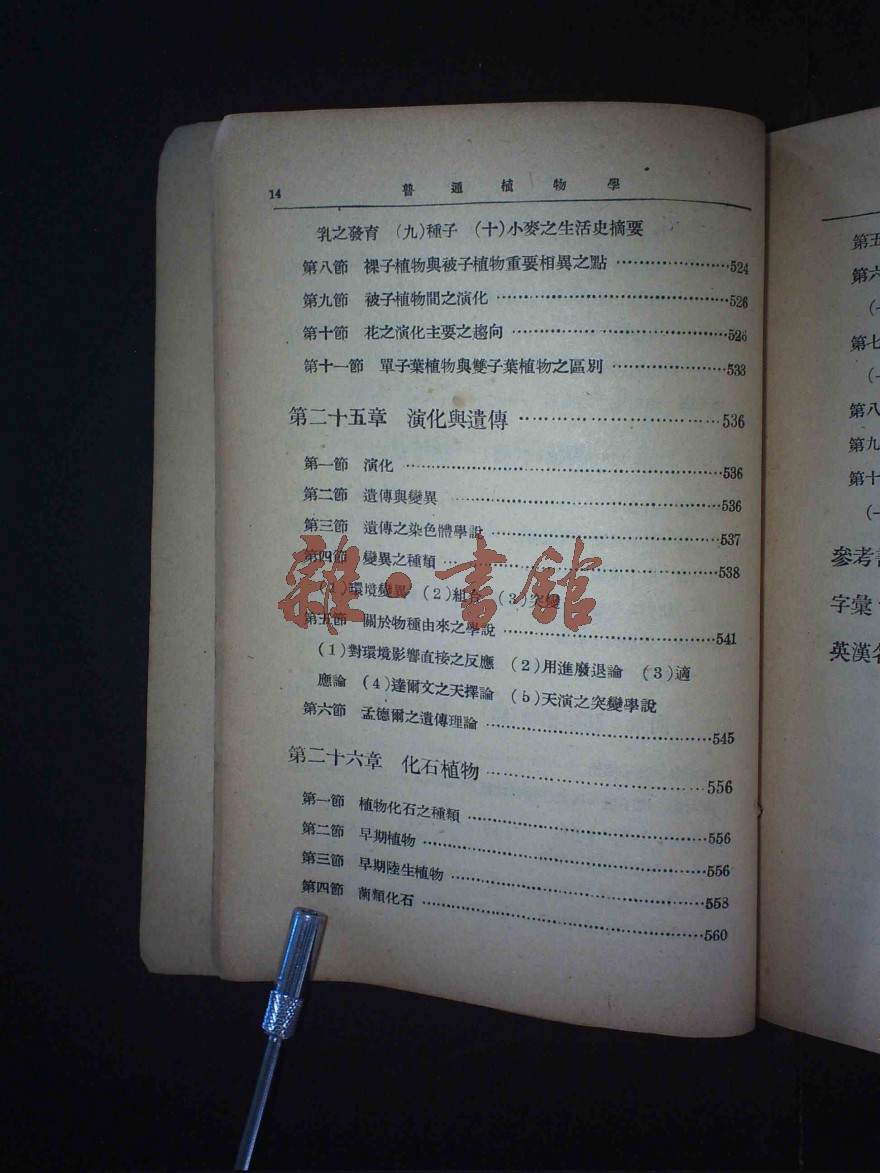 14 普通植物學
乳之發育 （九）種子 （十）小麥之生活史摘要
第八節 裸子植物與被子植物重要相異之點 …………………524
第九節 被子植物間之演化 ……………………………………526
第十節 花之演化主要之趨向 …………………………………528
第十一節 單子葉植物與雙子葉植物之區別 …………………533
第二十五章 演化與遺傳 ……………………………536
第一節 演化 ……………………………………………………536
第二節 遺傳與變異 ……………………………………………536
第三節 遺傳之染色體學說 ……………………………………537
第四節 變異之種類 ……………………………………………538
（1）環境變異 （2）組合 （3）突變
第五節 關於物種由來之學說 …………………………………541
（1）對環境影響直接之反應 （2）用進廢退論 （3）適
應論 （4）達爾文之天擇論 （5）天演之突變學說
第六節 孟德爾之遺傳理論 ……………………………………545
第二十六章 化石植物 ………………………………556
第一節 植物化石之種類 ………………………………………556
第二節 早期植物 ………………………………………………556
第三節 早期陸生植物 …………………………………………558
第四節 菌類化石 ………………………………………………560
雜·書館
第五
第六
（一
第七
（一
第八
第九
第十
（一
參考書
字彙
英漢名